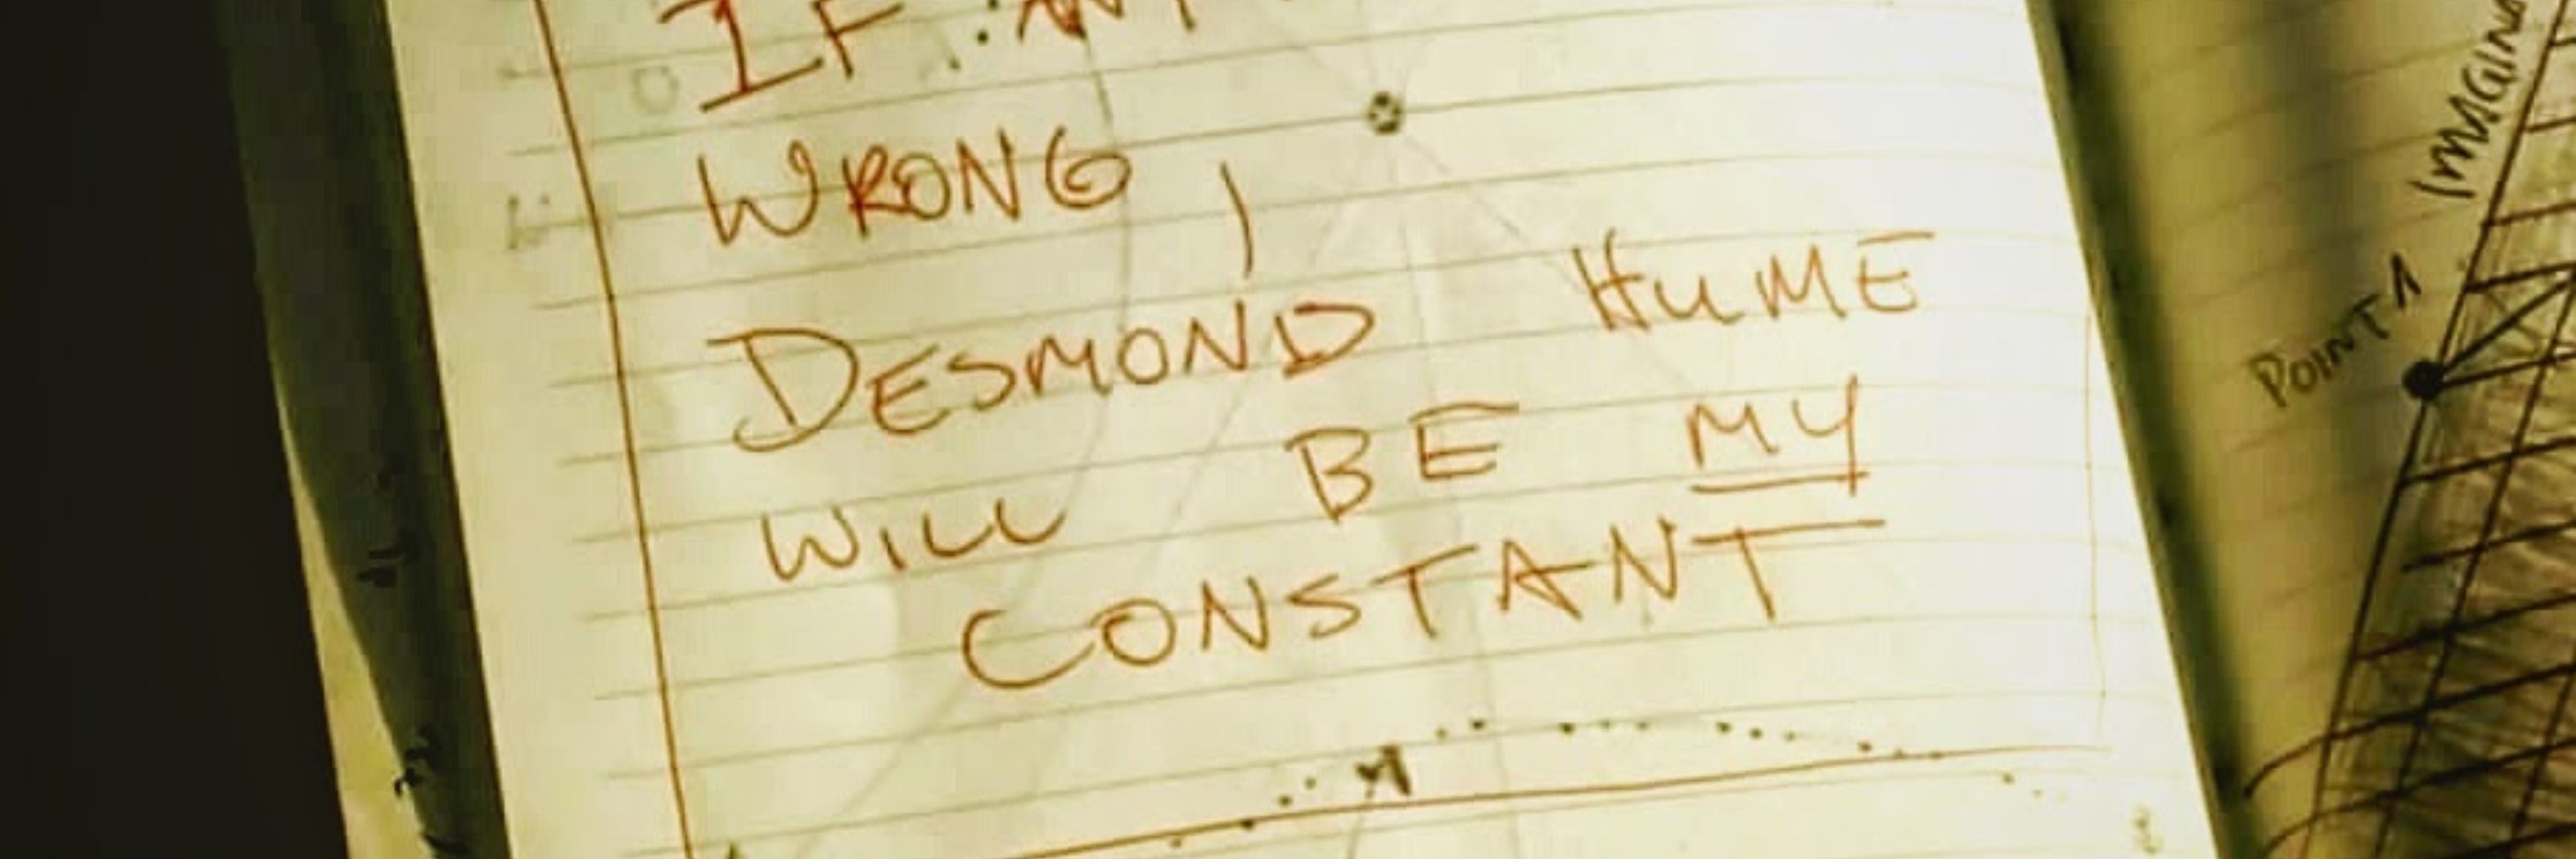 IF
WRONG,
DESMOND HUME
WILL BE MY
CONSTANT
POINT 1